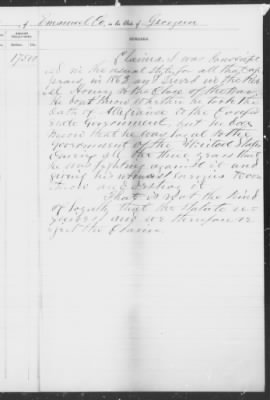 of Emanuel Co. in the State of Georgia
REMARKS.
17500
Claims I was conscripted
in the usual style for all that
in 1862 and served in the Rebel
Army to the Close of the War.
He don't know whether he took the
oath of Allegiance to the Confed-
erate Government, but he does
know that he was loyal to the
Government of the United States
during all the time even that
he was fighting against it and
giving his utmost service to over-
throw and destroy it.
That is not the kind
of loyalty that the statute re-
quires and we therefore re-
ject the Claim.